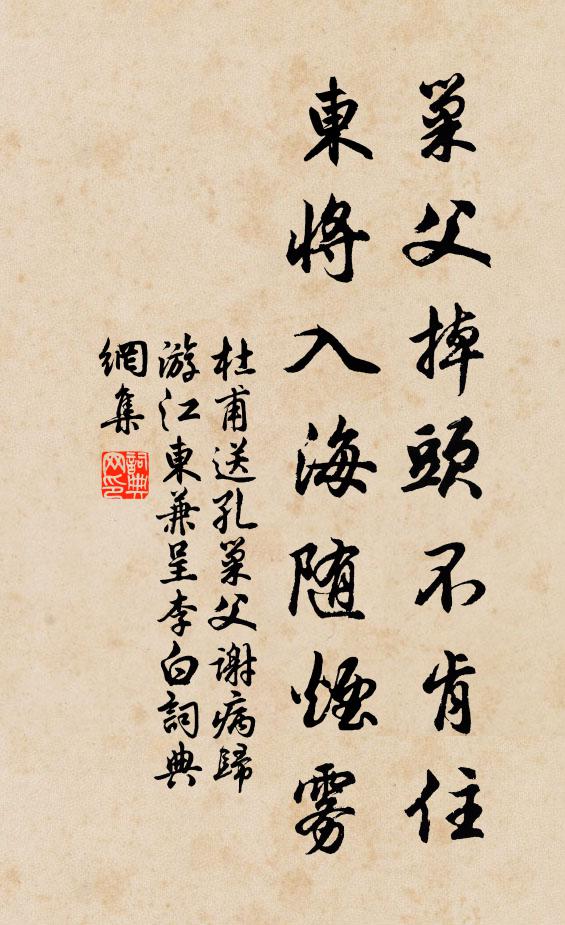 巢父掉頭不肯住
東將入海随煙雾
杜甫送孔巢父謝病歸
游江東兼呈李白詞典
網集
詞典网印